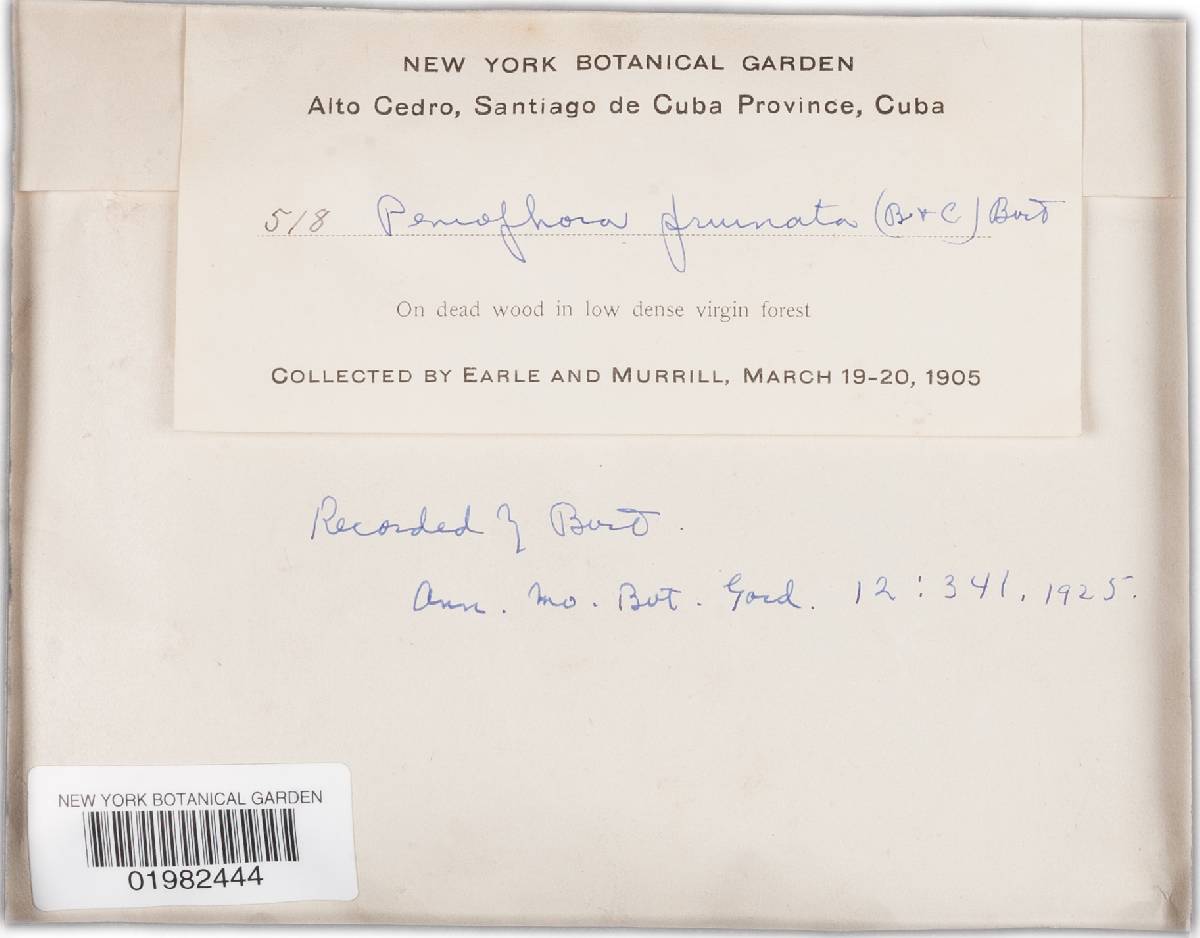 NEW YORK BOTANICAL GARDEN
Alto Cedro, Santiago de Cuba Province, Cuba
518 Peniophora pruinata (B & C) Burt
On dead wood in low dense virgin forest
COLLECTED BY EARLE AND MURRILL, MARCH 19-20, 1905
Recorded by Burt.
Ann. Mo. Bot. Gard. 12:341, 1925.
NEW YORK BOTANICAL GARDEN
01982444